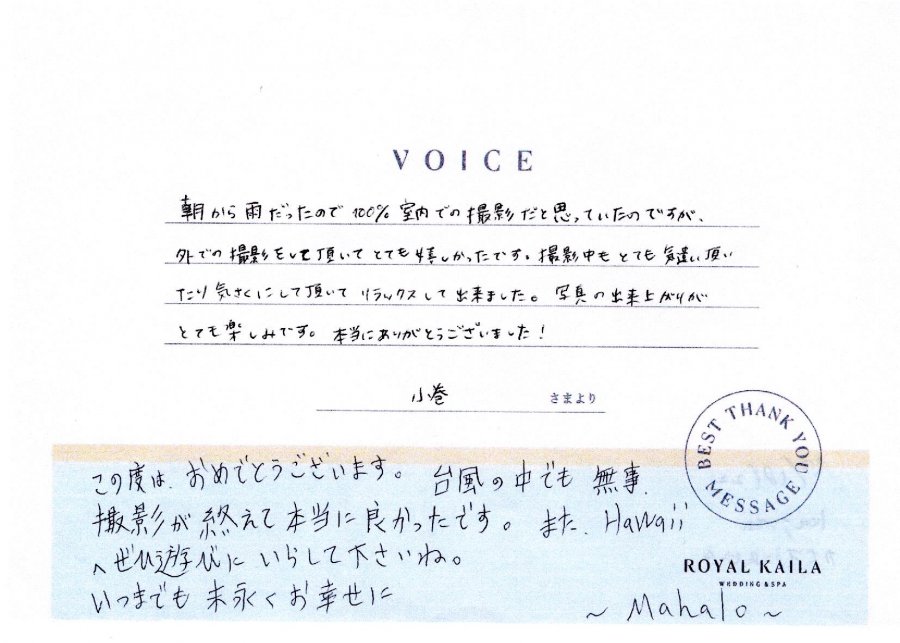 VOICE
朝から雨だったので100%室内での撮影だと思っていたのですが、
外での撮影をして頂いてとても嬉しかったです。撮影中もとても気遣い頂い
たり気さくにして頂いてリラックスして出来ました。写真の出来上がりが
とても楽しみです。本当にありがとうございました!
小巻 さまより
BEST THANK YOU MESSAGE
この度は、おめでとうございます。台風の中でも無事、
撮影が終えて本当に良かったです。また、Hawaii
へぜひ遊びにいらして下さいね。
いつまでも末永くお幸せに
ROYAL KAILA
WEDDING & SPA
～Mahalo～